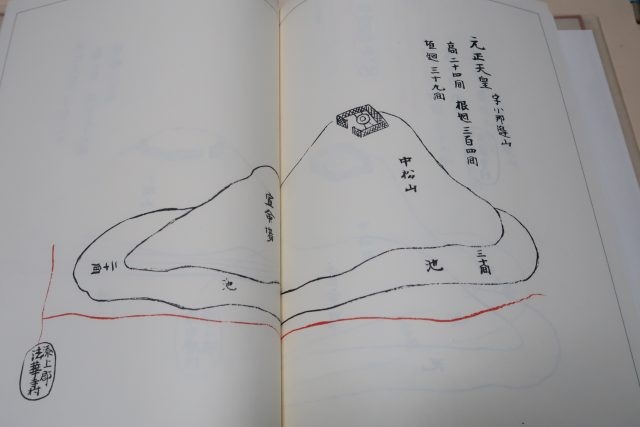 元正天皇 字小那邊山
高二十四間 根廻三百四間
垣廻三十九間
中松山
三十間
池
池
二十間
添上郡
法華寺村